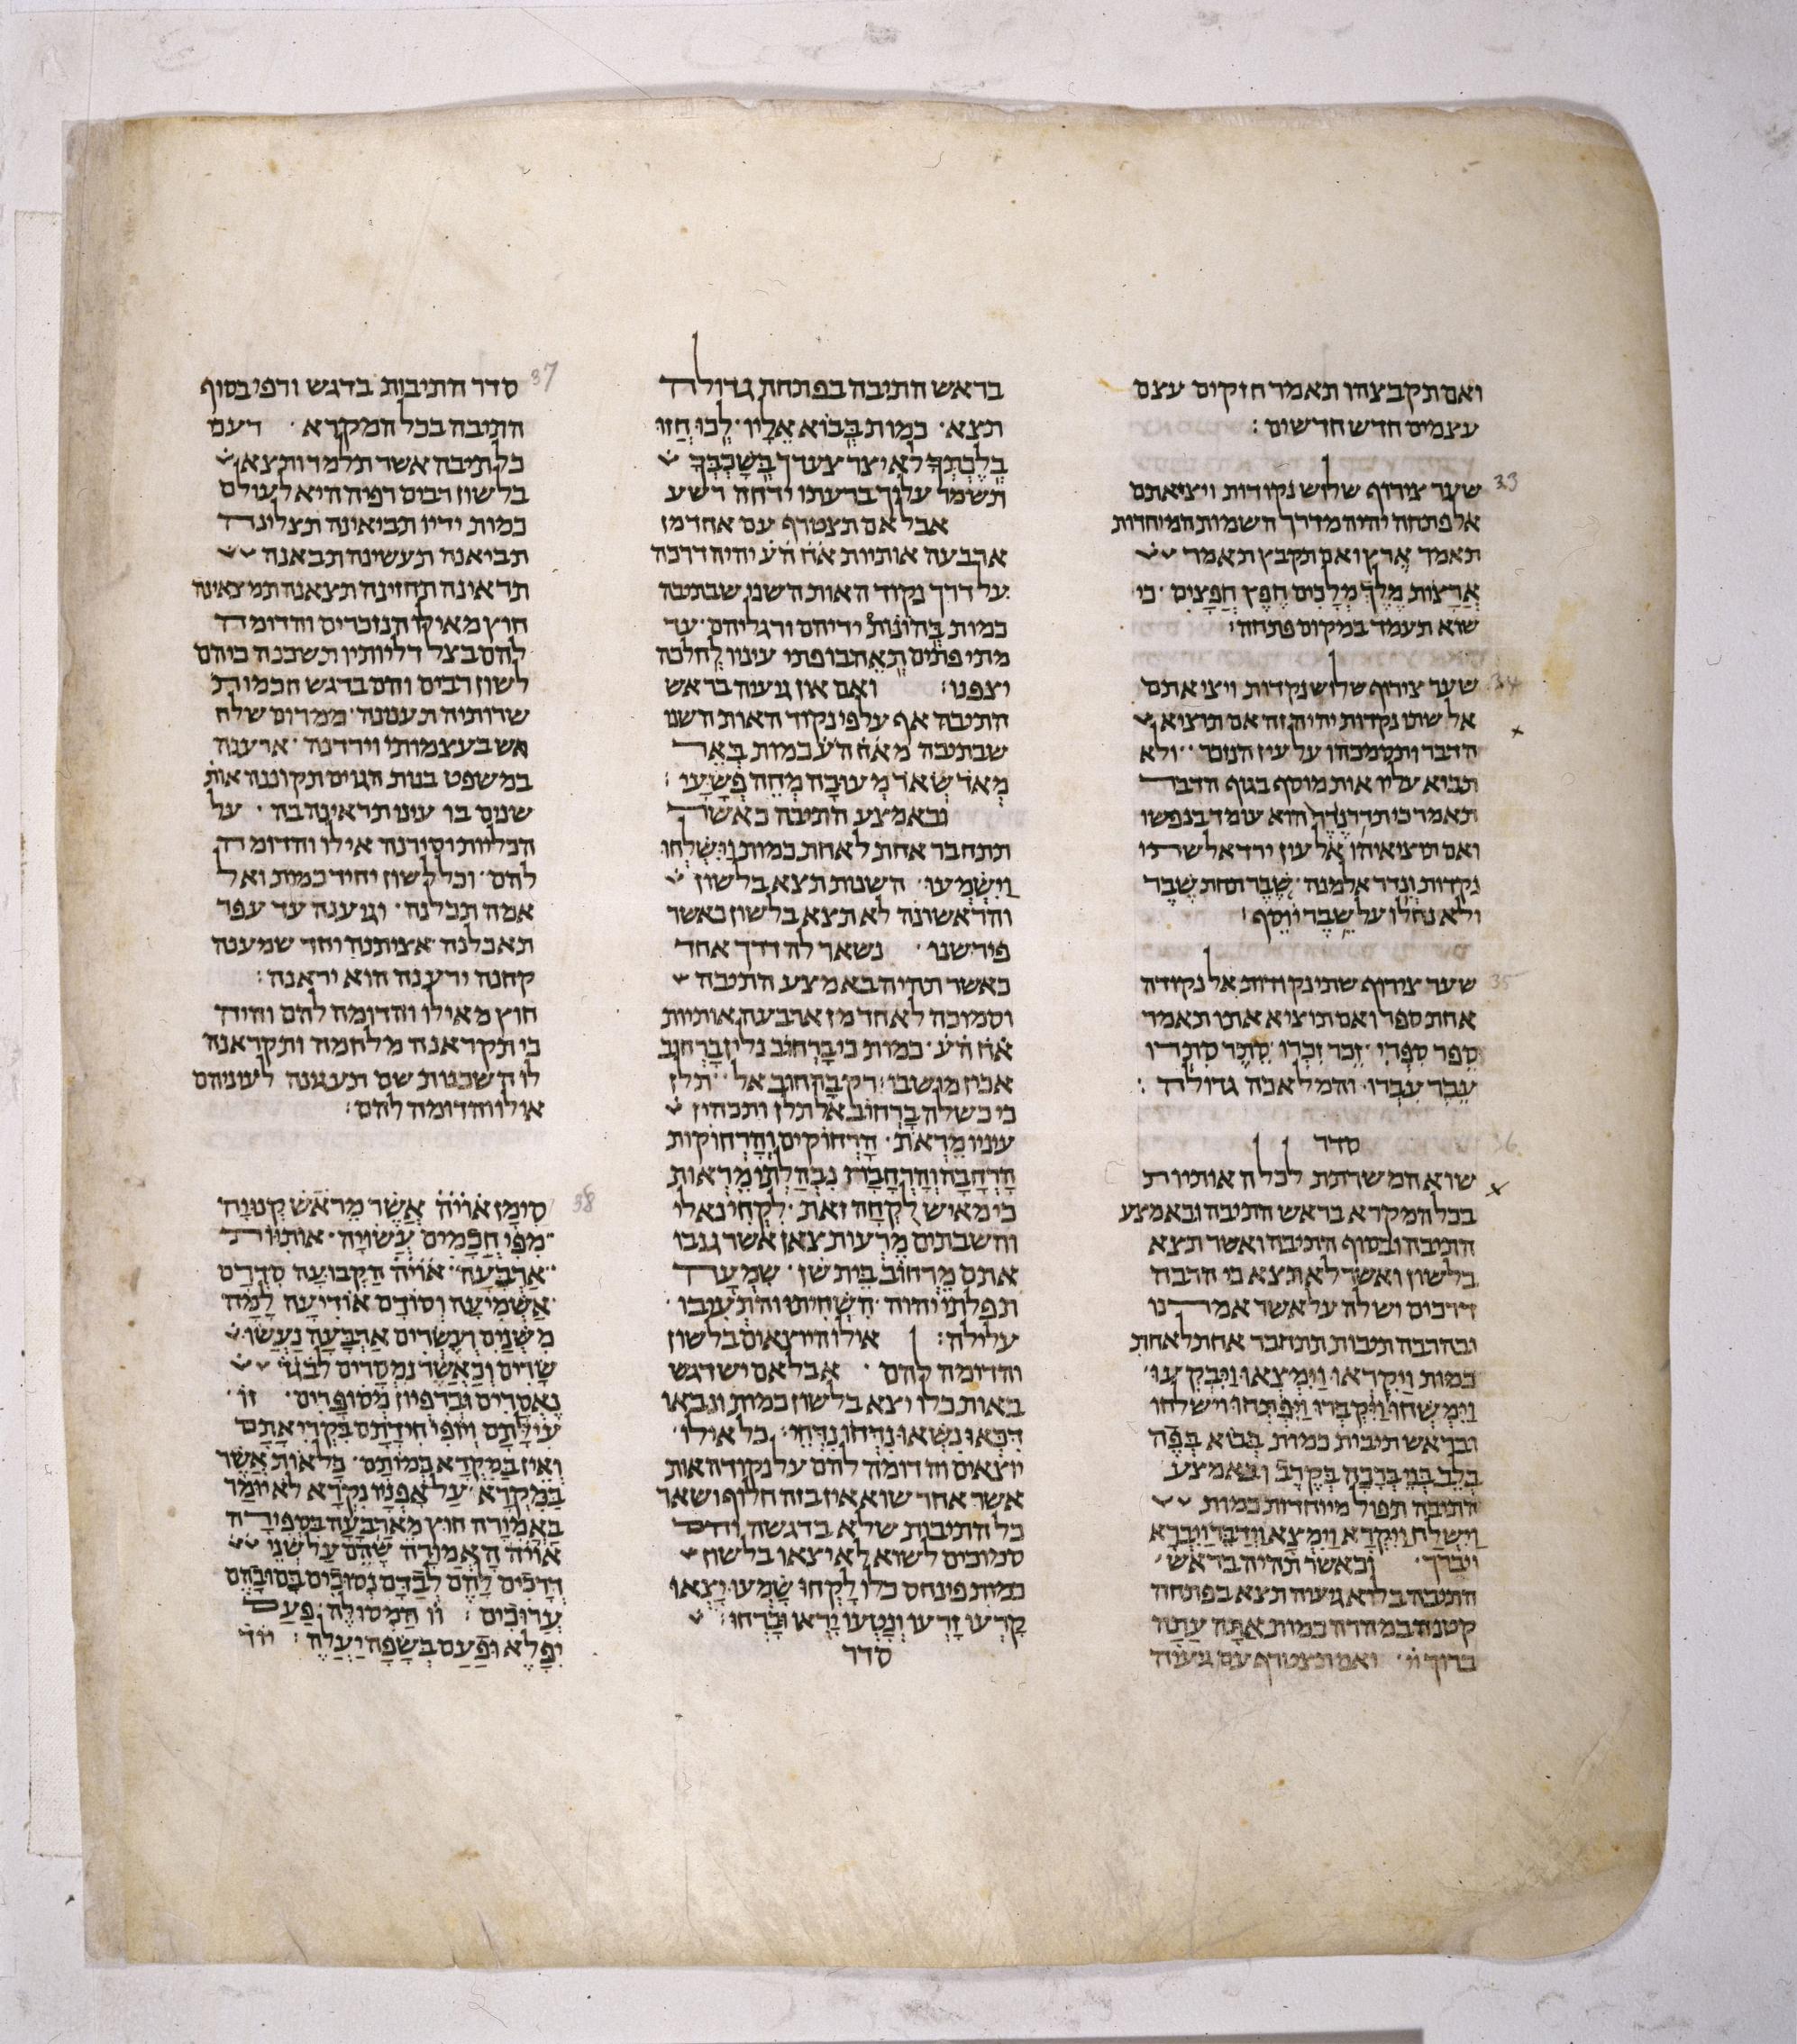 ואם תקבצהו תאמר חזקים עצם
עצמים חדש חדשים :
33
שער צירוף שלוש נקודות ויציאתם
אל פתחה יהיה מדרך השמות המיוחדות
תאמר אֶרֶץ ואם תקבץ תאמר
אֲרָצוֹת מֶלֶךְ מְלָכִים חֵפֶץ חֲפָצִים · כי
שוא תעמד במקום פתחה :
34
שער צירוף שלוש נקדות ויציאתם
אל שתי נקדות יהיה זה אם תוציא
הדבר ותסמכהו על עיז הנוסף · ולא
תבוא עליו אות מוסף בגוף הדבר
תאמר כי תדר נֶדֶר הוא עומד בנפשו
ואם תוציאיהו אל עוז ירד אל שתי
נקדות וְנֵדֶר אלמנה · שֶׁבֶר תחת שֶׁבֶר
ולא נחלו על שֵׁבֶר יוֹסֵף :
35
שער צירוף שתי נקודות אל נקודה
אחת ספר ואם תוציא אתו תאמר
סֵפֶר סִפְרִי זֵכֶר זִכְרוֹ סֵתֶר סִתְרוֹ
עֵבֶר עִבְרוֹ · והמלאכה גדולה :
36
סדר
שוא המשרתת לכל האותיות
בכל המקרא בראש התיבה ובאמצע
התיבה ובסוף התיבה ואשר תצא
בלשון ואשר לא תצא כי הרבה
דרכים יש לה על אשר אמרנו
ובהרבה תיבות תתחבר אחת לאחת
כמות וַיִּקְרְאוּ וַיִּמְצְאוּ וַיִּבְקְעוּ ·
וַיִּמְשְׁחוּ וַיִּקְבְּרוּ וַיִּפְתְּחוּ וישלחו
ובראש תיבות כמות בְּבוֹא בְּפֶה
בְּלֵב בְּנֵי בְּרָכָה בְּקֶרֶב ובאמצע
התיבה תפול מיוחדות כמות
וַיִּשְׁלַח וַיִּקְרָא וַיִּמְצָא וַיְדַבֵּר וַיִּבְרָא
ויברך · וכאשר תהיה בראש
התיבה בלא געיה תצא בפתחה
קטנה במהרה כמות אַתָּה עַתָּה
ברוך יי · ואם תצטרף עם געיה
בראש התיבה בפתחה גדולה
תצא · כמות בְּבוֹא אֵלָיו · לְכוּ חֲזוּ
בְּלֶכְתְּךָ לא יצר צעדך בְּשָׁכְבְּךָ
תשמר עליך ברעתו ידחה רשע
אבל אם תצטרף עם אחד מן
ארבעה אותיות אֹהֹ חֹעֹ יהיה דרכה
על דרך נקוד האות השני שבתיבה
כמות בְּהוֹנוֹת ידיהם ורגליהם · עד
מתי פתים תְּאֵהֲבוּ פתי עיניו לְחֵלכה
יצפנו : ואם אין געיה בראש
התיבה אף על פי נקוד האות השני
שבתיבה מֹאֹהֹ חֹעֹ כמות בְּאֵר
מְאֹד שְׂאֹר מְעוּכָה מְחֵה פְשָׁעָי :
ובאמצע התיבה כאשר
תתחבר אחת לאחת כמות וַיִּשְׁלְחוּ
וַיִּשְׁמְעוּ · השנית תצא בלשון
והראשונה לא תצא בלשון כאשר
פירשנו · נשאר לה דרך אחד
כאשר תהיה באמצע התיבה
וסמוכה לאחד מן ארבעה אותיות
אֹהֹ חֹעֹ · כמות כי בָרְחוֹב נלין בָּרְחוֹב
אכין מושבי : רק בָרְחוב אל תלן
כי כשלה בָרְחוֹב אל תלן ותכהין
עיניו מֵרְאֹת · הָרְחוֹקִים וְהָרְחוֹקוֹת
הָרְחָבָה וְהָרְחָבַת נִבְהַלְתִּי מֵרְאוֹת
כי מאיש לֻקְחָה זאת · לִקְחִי נא לי
והשבתים מֵרְעוֹת צאן אשר גנבו
אתם מֵרְחוֹב בֵּית שָׁן · שִׁמְעָה
תפלתי יהוה · הִשְׁחִיתוּ וְהִתְעִיבוּ ·
עלילה : אילו היוצאים בלשון
והדומה להם · אבל אם יש דגש
באות כלו יצא בלשון כמות ונבאו
דִּכְּאוּ נִשְּׂאוּ נִדְּחוּ נִדְּחֵי · כל אילו ·
יוצאים והדומה להם על נקודה אות
אשר אחר שוא אין בזה חלוף ושאר
כל התיבות שלא בדגשה והם
סמוכים לשוא לא יצאו בלשון
כמות פינחס כלו לָקְחוּ שָׁמְעוּ יָצְאוּ
קָרְעוּ זָרְעוּ וְנָטְעוּ יָרְאוּ וּבָרְחוּ :
סדר
37
סדר התיבות בדגש ורפי בסוף
התיבה בכל המקרא · דעם
כל תיבה אשר תלמד ותצא
בלשון רבים רפיה היא לעולם
כמות ידיו תביאינה תצלינה
תביאנה תעשינה תבאנה
תראינה תחזינה תצאנה תמצאינה
חוץ מאילו הנזכרים והדומה
להם בצל דליותיו תשכנה כיהם
לשון רבים והם בדגש חכמות
שרותיה תעננה · ממרום שלח
אש בעצמותי וירדנה · ארענה
במשפט בנות הגוים תקוננה אות
שנים בו עיני תראינה בה · על
הכליות יסירנה אילו והדומה
להם · וכל לשון יחיד כמות ואל
אמה תכלנה · וגיענה עד עפר
תאכלנה · אציתנה יחד שמענה
קחנה ידענה הוא יראנה :
חוץ מאילו והדומה להם והידן
כי תקראנה מלחמה ותקראנה
לו השכנות שם תעגנה לעוניהם
אילו והדומה להם :
38
סִימָן אֹוֹיֹהֹ אֲשֶׁר מֵרֹאשׁ קְנוּיָה
מִפִּי חֲכָמִים עֲשׂוּיָה · אוֹתִיּוֹת
אַרְבָּעָה · אֹוֹיֹהֹ הַקְּבוּעָה סִדְרָם
אַשְׁמִיעָה וְסוֹדָם אוֹדִיעָה לָמָּה
מִשְּׁנַיִם וְעֶשְׂרִים אַרְבָּעָה נַעֲשׂוּ
שָׂרִים וְכַאֲשֶׁר נִמְסָרִים לְבֶגֶד
נֶאֱסָרִים וּבְרִפְיוֹן מְסוּפָּרִים · זוֹ ·
עִילָּתָם וְיוֹפִי חִידָתָם בִּקְרִיאָתָם
וְאֵין בַּמִּקְרָא כְּמוֹתָם · כָּל אוֹת אֲשֶׁר
בַּמִּקְרָא · עַל אָפְנָיו נִקְרָא לֹא יוּמַר
בַּאֲמִירָה חוּץ מֵאַרְבָּעָה בִּסְפִירָה
אֹוֹיֹהֹ הָאֲמוּרָה שֶׁהֵם עַל שְׁנֵי
דְּרָכִים לָהֶם לְבַדָּם נְסוּכִים בְּסוֹבָּהֶם
עֲרוּכִים : וֹוֹ הַמְסוּלֶּה · פַּעַם
יִפָּלֵא וּפַעַם בְּשָׂפָה יַעֲלֶה : יוֹד